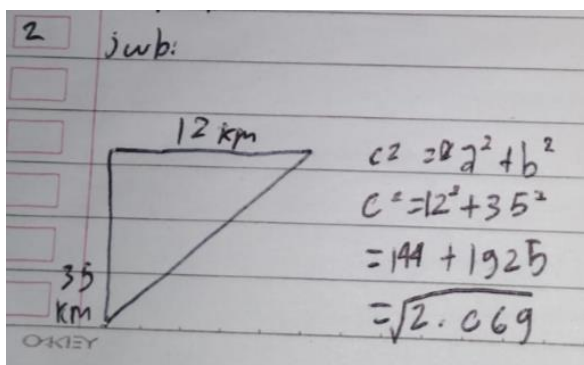 2
jwb:
12 km
35
km
c2 = a² + b²
c² = 12² + 35²
= 144 + 1925
= √2.069
OKEY